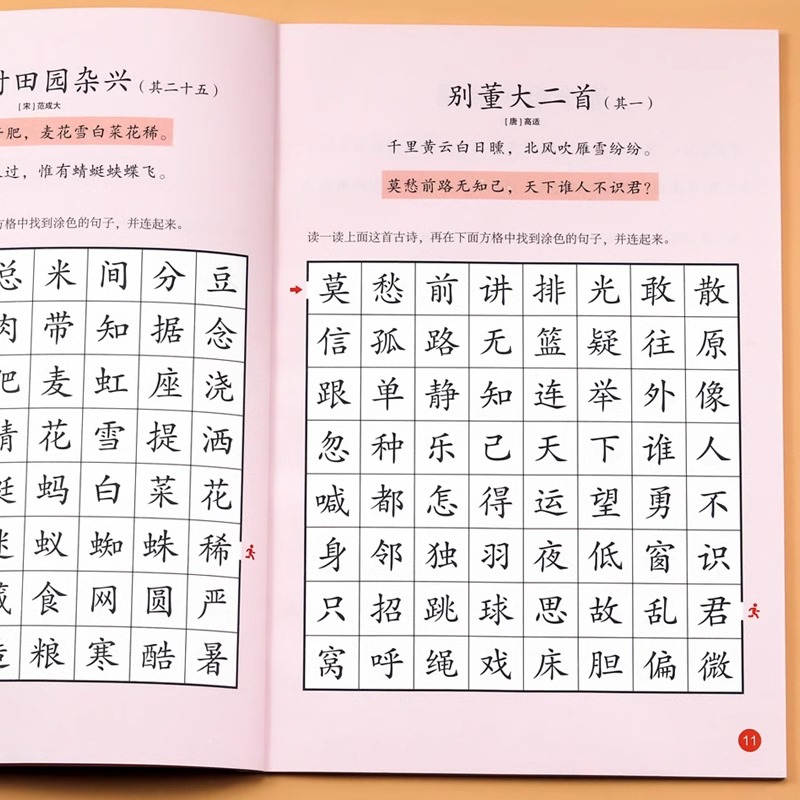 田园杂兴（其二十五）
［宋］范成大
肥，麦花雪白菜花稀。
过，惟有蜻蜓蛱蝶飞。
方格中找到涂色的句子，并连起来。
总米间分豆
肉带知据念
肥麦虹座浇
蜻花雪提洒
蜓蚂白菜花
迷蚁蜘蛛稀
食网圆严
粮寒酷暑
别董大二首（其一）
［唐］高适
千里黄云白日曛，北风吹雁雪纷纷。
莫愁前路无知己，天下谁人不识君？
读一读上面这首古诗，再在下面方格中找到涂色的句子，并连起来。
莫愁前讲排光敢散
信孤路无篮疑往原
跟单静知连举外像
忽种乐己天下谁人
喊都怎得运望勇不
身邻独羽夜低窗识
只招跳球思故乱君
窝呼绳戏床胆偏微
11